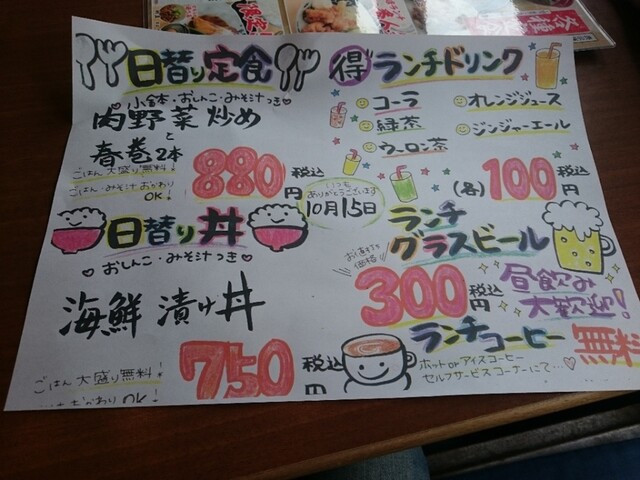 日替り定食
小鉢・おしんこ・みそ汁つき
肉野菜炒め
と
春巻2本
ごはん大盛り無料!
ごはん・みそ汁おかわりOK!
880円
税込
いつもありがとうございます
10月15日
日替り丼
おしんこ・みそ汁つき
海鮮漬け丼
ごはん大盛り無料!
おかわりOK!
750
税込
得ランチドリンク
コーラ
緑茶
ウーロン茶
オレンジジュース
ジンジャーエール
(各)100円
税込
ランチ
グラスビール
お値打ち価格
300円
税込
昼飲み
大歓迎!
ランチコーヒー
無料
ホットorアイスコーヒー
セルフサービスコーナーにて…